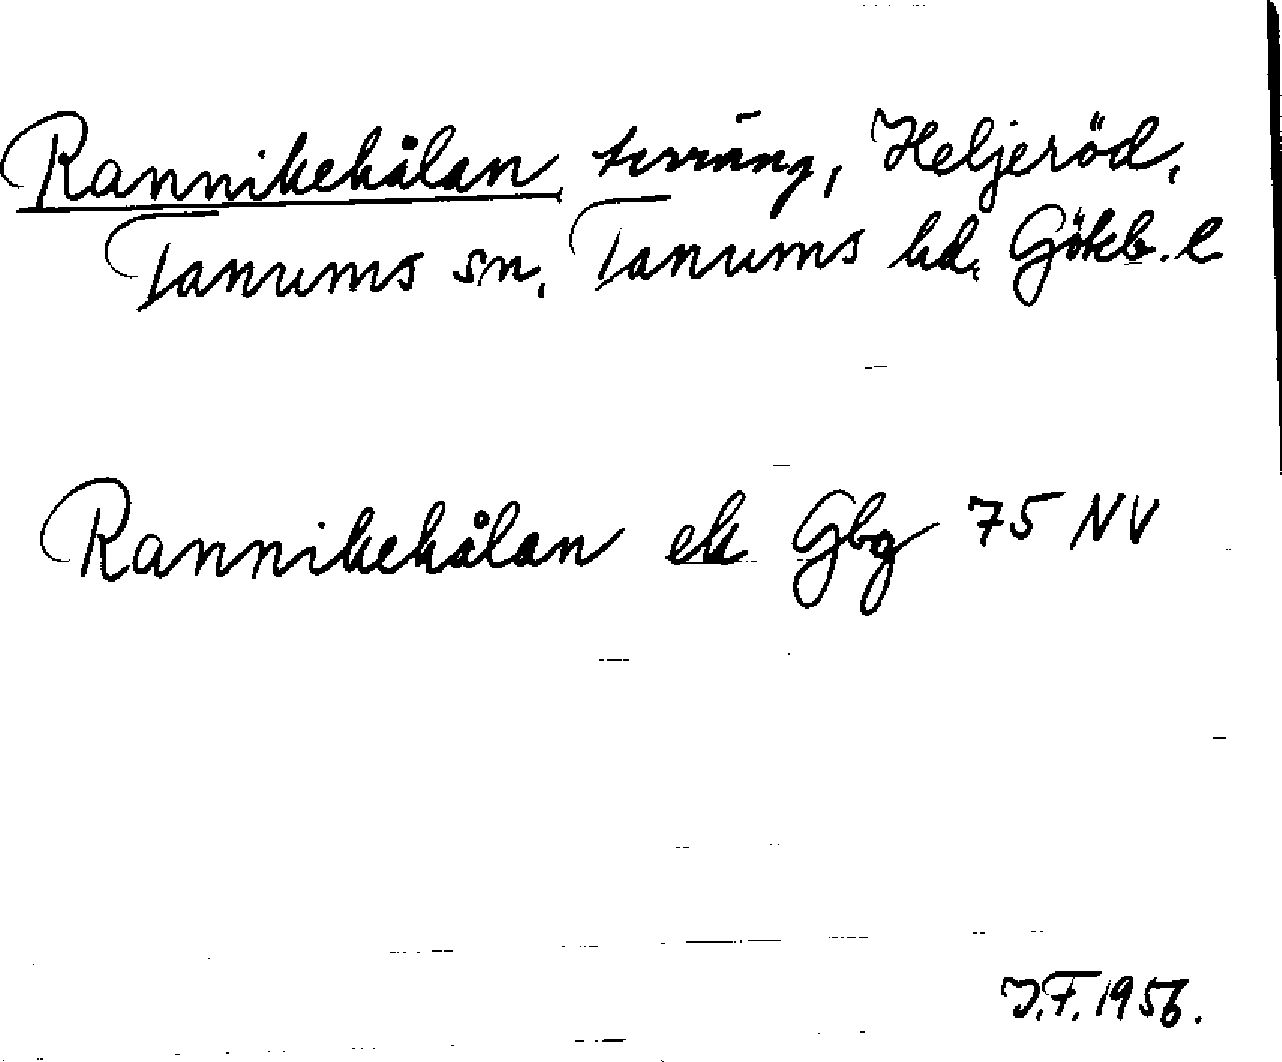 Rannikekålan, terräng, Heljeröd,
Tanums sn, Tanums hd, Göteb. l
Rannikekålan ek Gbg 75 NV
J.F. 1956.